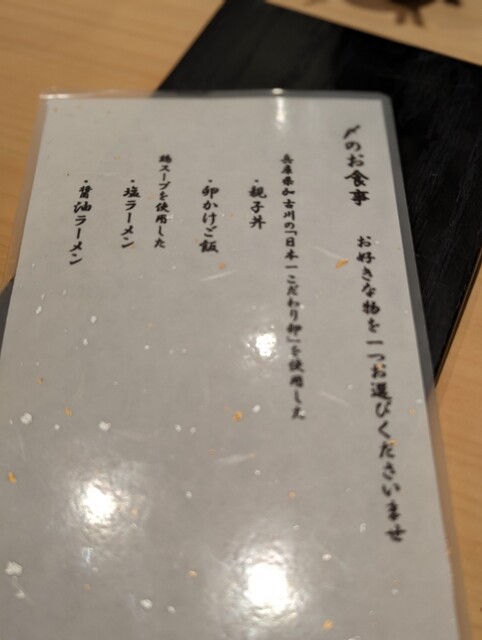 〆のお食事　お好きな物を一つお選びくださいませ
兵庫県加古川の「日本一こだわり卵」を使用した
・親子丼
・卵かけご飯
鶏スープを使用した
・塩ラーメン
・醤油ラーメン